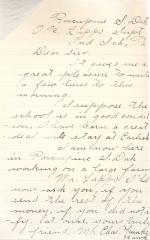 Porcupine S. Dak
O. H. Lipps Supt.
Ind Sch.
Dear Sir:
It gives me a
great pleasure to write
a few lines to this
morning.
I suppose the
school is in good condit
ion, I have learn a great
deal at Carlisle
I am know here
in Porcupine S. Dak
working on a large farm
Mr. Lipps
now ask you, if you
send the rest of the
money, if you do not
yours truly
friend, Chas.